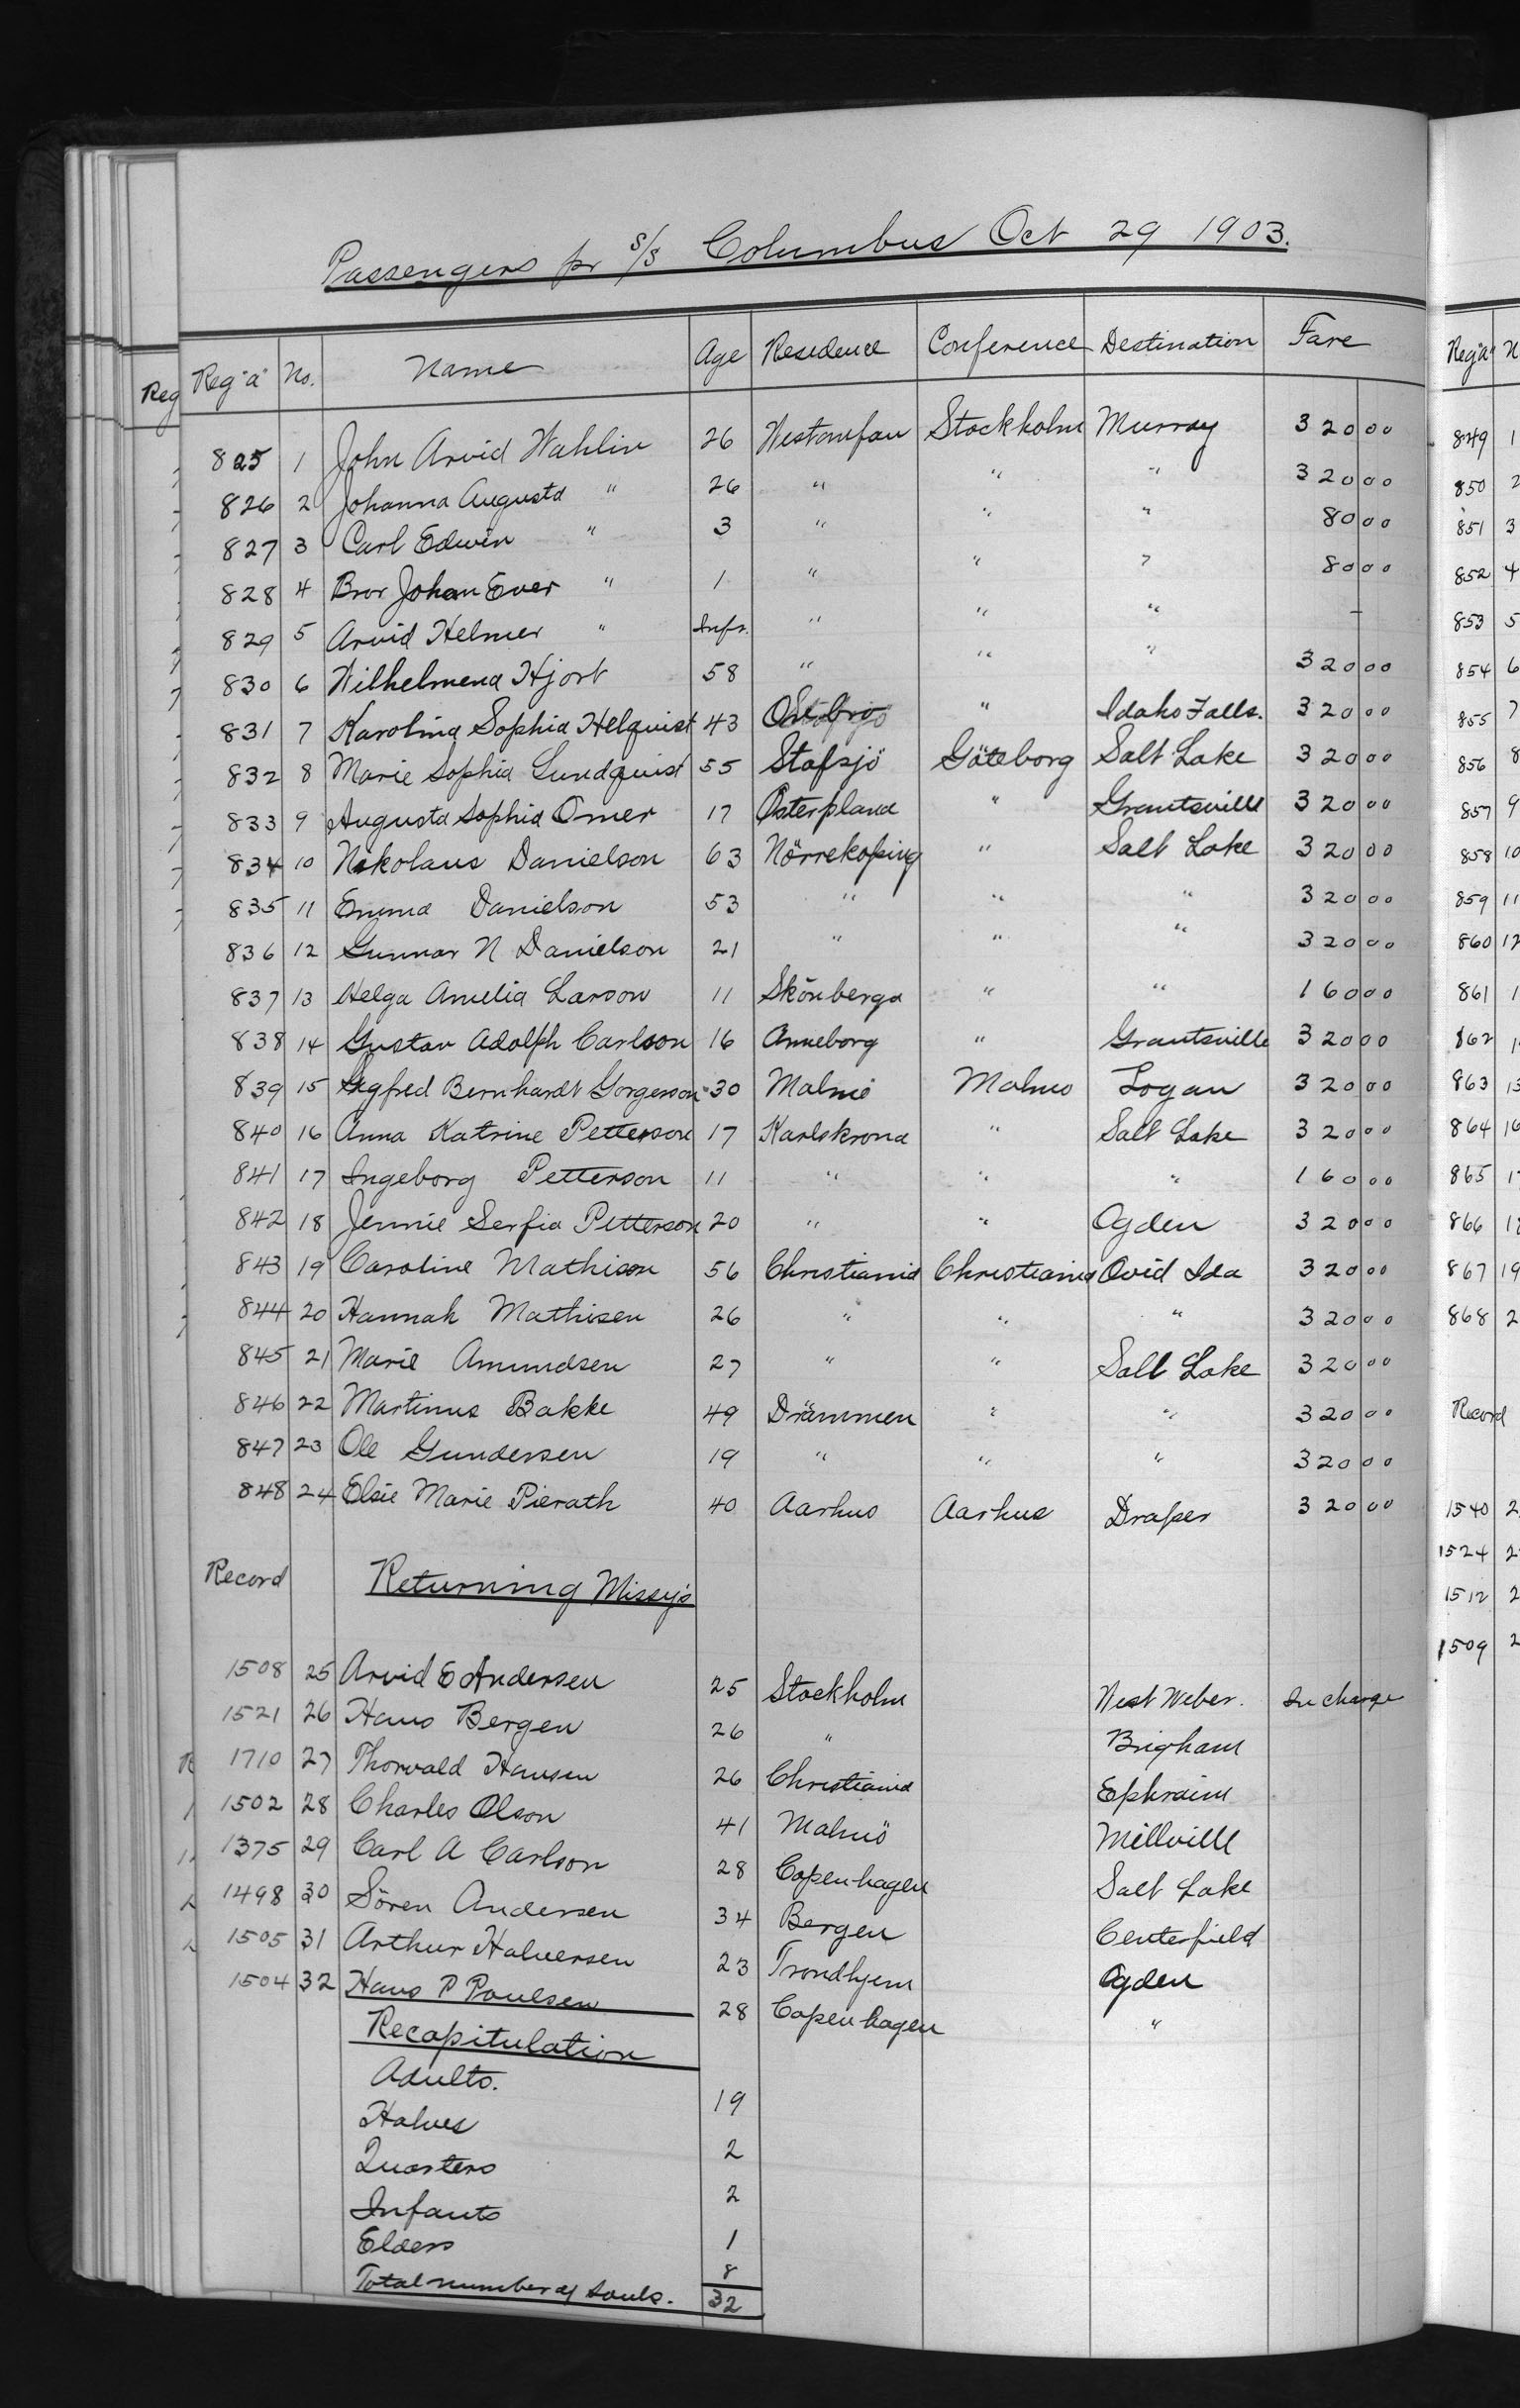 Passengers pr s/s Columbus Oct 29 1903.
Reg "a" No. Name Age Residence Conference Destination Fare
825 1 John Arvid Wahlin 26 Stockholm Murray 320 00
826 2 Johanna Augusta " 26 " " " 320 00
827 3 Carl Edwin " 3 " " " 80 00
828 4 Bror Johan Ever " 1 " " " 80 00
829 5 Arvid Helmer " Inft. " " " –
830 6 Wilhelmena Hjort 58 " " " 320 00
831 7 Karolina Sophia Helquist 43 " Idaho Falls. 320 00
832 8 Marie Sophia Lundquist 55 Stafsjö Göteborg Salt Lake 320 00
833 9 Augusta Sophia Omer 17 Osterpland " Grantsville 320 00
834 10 Nikolaus Danielson 63 Nörrekoping " Salt Lake 320 00
835 11 Emma Danielson 53 " " " 320 00
836 12 Gunnar N Danielson 21 " " " 320 00
837 13 Helga Amelia Larson 11 Skönberga " " 160 00
838 14 Gustav Adolph Carlson 16 Anneborg " Grantsville 320 00
839 15 Sigfred Bernhardt Gorgerson 30 Malmö Malmo Logan 320 00
840 16 Anna Katrine Petterson 17 Karlskrona " Salt Lake 320 00
841 17 Ingeborg Petterson 11 " " " 160 00
842 18 Jennie Serfia Petterson 20 " " Ogden 320 00
843 19 Caroline Mathison 56 Christiania Christiania Ovid Ida 320 00
844 20 Hannah Mathisen 26 " " " 320 00
845 21 Marie Amundsen 27 " " Salt Lake 320 00
846 22 Martinus Bakke 49 Drammen " " 320 00
847 23 Ole Gundersen 19 " " " 320 00
848 24 Elsie Marie Pierath 40 Aarhus Aarhus Draper 320 00
Record Returning Missy's
1508 25 Arvid E Andersen 25 Stockholm West Weber. In charge
1521 26 Hans Bergen 26 " Brigham
1710 27 Thorvald Hansen 26 Christiania Ephraim
1502 28 Charles Olson 41 Malmö Millville
1375 29 Carl A Carlson 28 Copenhagen Salt Lake
1498 30 Sören Andersen 34 Bergen Centerfield
1505 31 Arthur Halversen 23 Trondhjem Ogden
1504 32 Hans P Poulsen 28 Copenhagen "
Recapitulation
Adults. 19
Halves 2
Quarters 2
Infants 1
Elders 8
Total number of souls. 32
Reg
Reg "a" N
849 1
850 2
851 3
852 4
853 5
854 6
855 7
856 8
857 9
858 10
859 11
860 12
861 1
862 1
863 13
864 16
865 1
866 18
867 19
868 2
Record
1540 2
1524 2
1512 2
1509 2